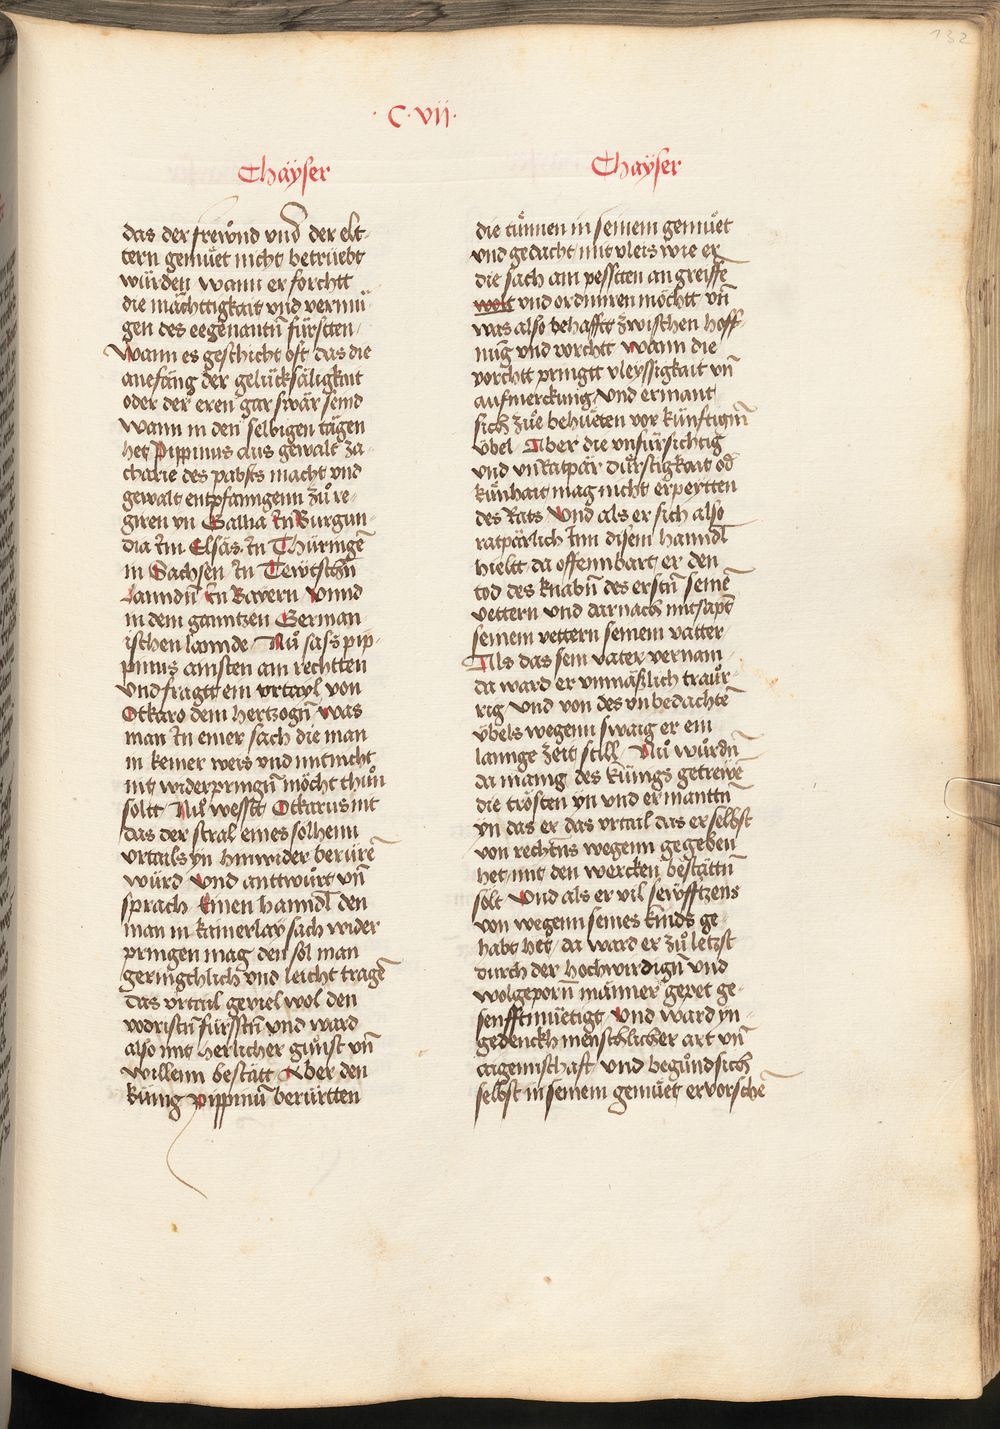 132
· C · vij ·
Chaÿser
das der frewͦnd vnd der elt-
tern gemuͤet nicht betruͤebt
wuͤrden wann er forchtt
die maͤchttigkait vnd vermuͤ
gen des eegenantn̄ fuͤrstten
Wann es geschicht oft das die
anefäng der geluͤcksäligkait
oder der eren gar swär seind
Wann in den selbigen tägen
het Pippinus aus gewalt za-
charie des pabsts macht vnd
gewalt entpfanngenn zuͦ re-
giren yn Gallia In Burgun-
dia Im Elsäs In Thuͤringē
in Sachsen In Tewtschn̄
Lanndn̄ In Bayern Vnnd
in dem ganntzen German-
ischen lannde Nuͦ sass pip-
pinus amsten am rechtten
vnd fragtt ein vrtayl von
Otkaro dem hertzogn̄ was
man In einer sach die man
in keiner weis vnd mit nicht
mit widerpringn̄ möcht thuͦn
soltt Nuͦ wesstt Otkarus nit
das der stral eines solhenn
vrtails yn hinwider beruͤrē
wuͤrd vnd anttwuͦrt vn̄
sprach Einen hanndl den
man in kainerlay sach wider
pringen mag den sol man
geringchlich vnd leicht tragē
Das vrtail geviel wol den
vodristn̄ fuͤrsstn̄ vnd ward
also mit herlicher guͦnst vn̄
willenn bestätt Aber den
kuͤnig pippinū beruͤrtten
Chaÿser
die tuͤnnen in seinem gemuͤet
vnd gedacht mit vleis wie er
die sach am pesstten an greiffe
wolt vnd ordiniren möchtt vn̄
was also behafftt zwischen hoff-
nūg vnd vorchtt Wann die
vorchtt pringtt vleyssigkait vn̄
aufmerckung vnd ermant
sich zuͤe behuͤeten vor kuͤnftign̄
vbel Aber die vnfuͤrsichtig
vnd vnRatpär duͤrstigkait od̄
kuͤnhait mag nicht erpeytten
des Rats Vnd als er sich also
ratpärlich Inn disem hanndl
hieltt da offennbart er den
tod des knabn̄ des erstn̄ seinē
vettern vnd darnach mitsapt
seinem vettern seinem vatter
Als das sein vater vernam
da ward er vnmäßlich trauͦr-
rig Vnd von des vnbedachtē
vͤbels wegenn swaig er ein
lannge zeit still Nuͦ wuͦrdn̄
da manig des kuͤnigs getreẅē
die trösten yn vnd ermanttn̄
yn das er das vrtail das er selbst
von rechtns wegenn gegeben
het mit den wercken bestättn̄
sölt Vnd als er vil sewfftzens
von wegenn seines kinds ge-
habt het da ward er zuͦ letzst
durch der hochwirdign̄ vnd
wolgeporn̄ männer gepet ge-
senfftmuͤetigt Vnd ward yn-
gedenckh menschlicher art vn̄
aigennschaft vnd beguͦnd sich
selbst in seinem gemuͤet ervorschē